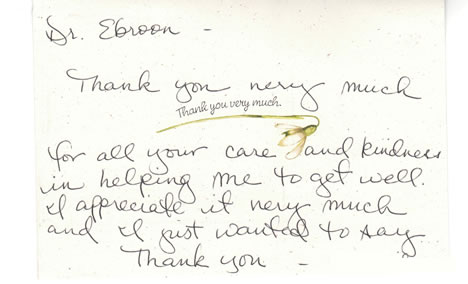 Dr. Ebroon -
Thank you very much
Thank you very much.
for all your care and kindness
in helping me to get well.
I appreciate it very much
and I just wanted to say
Thank you -